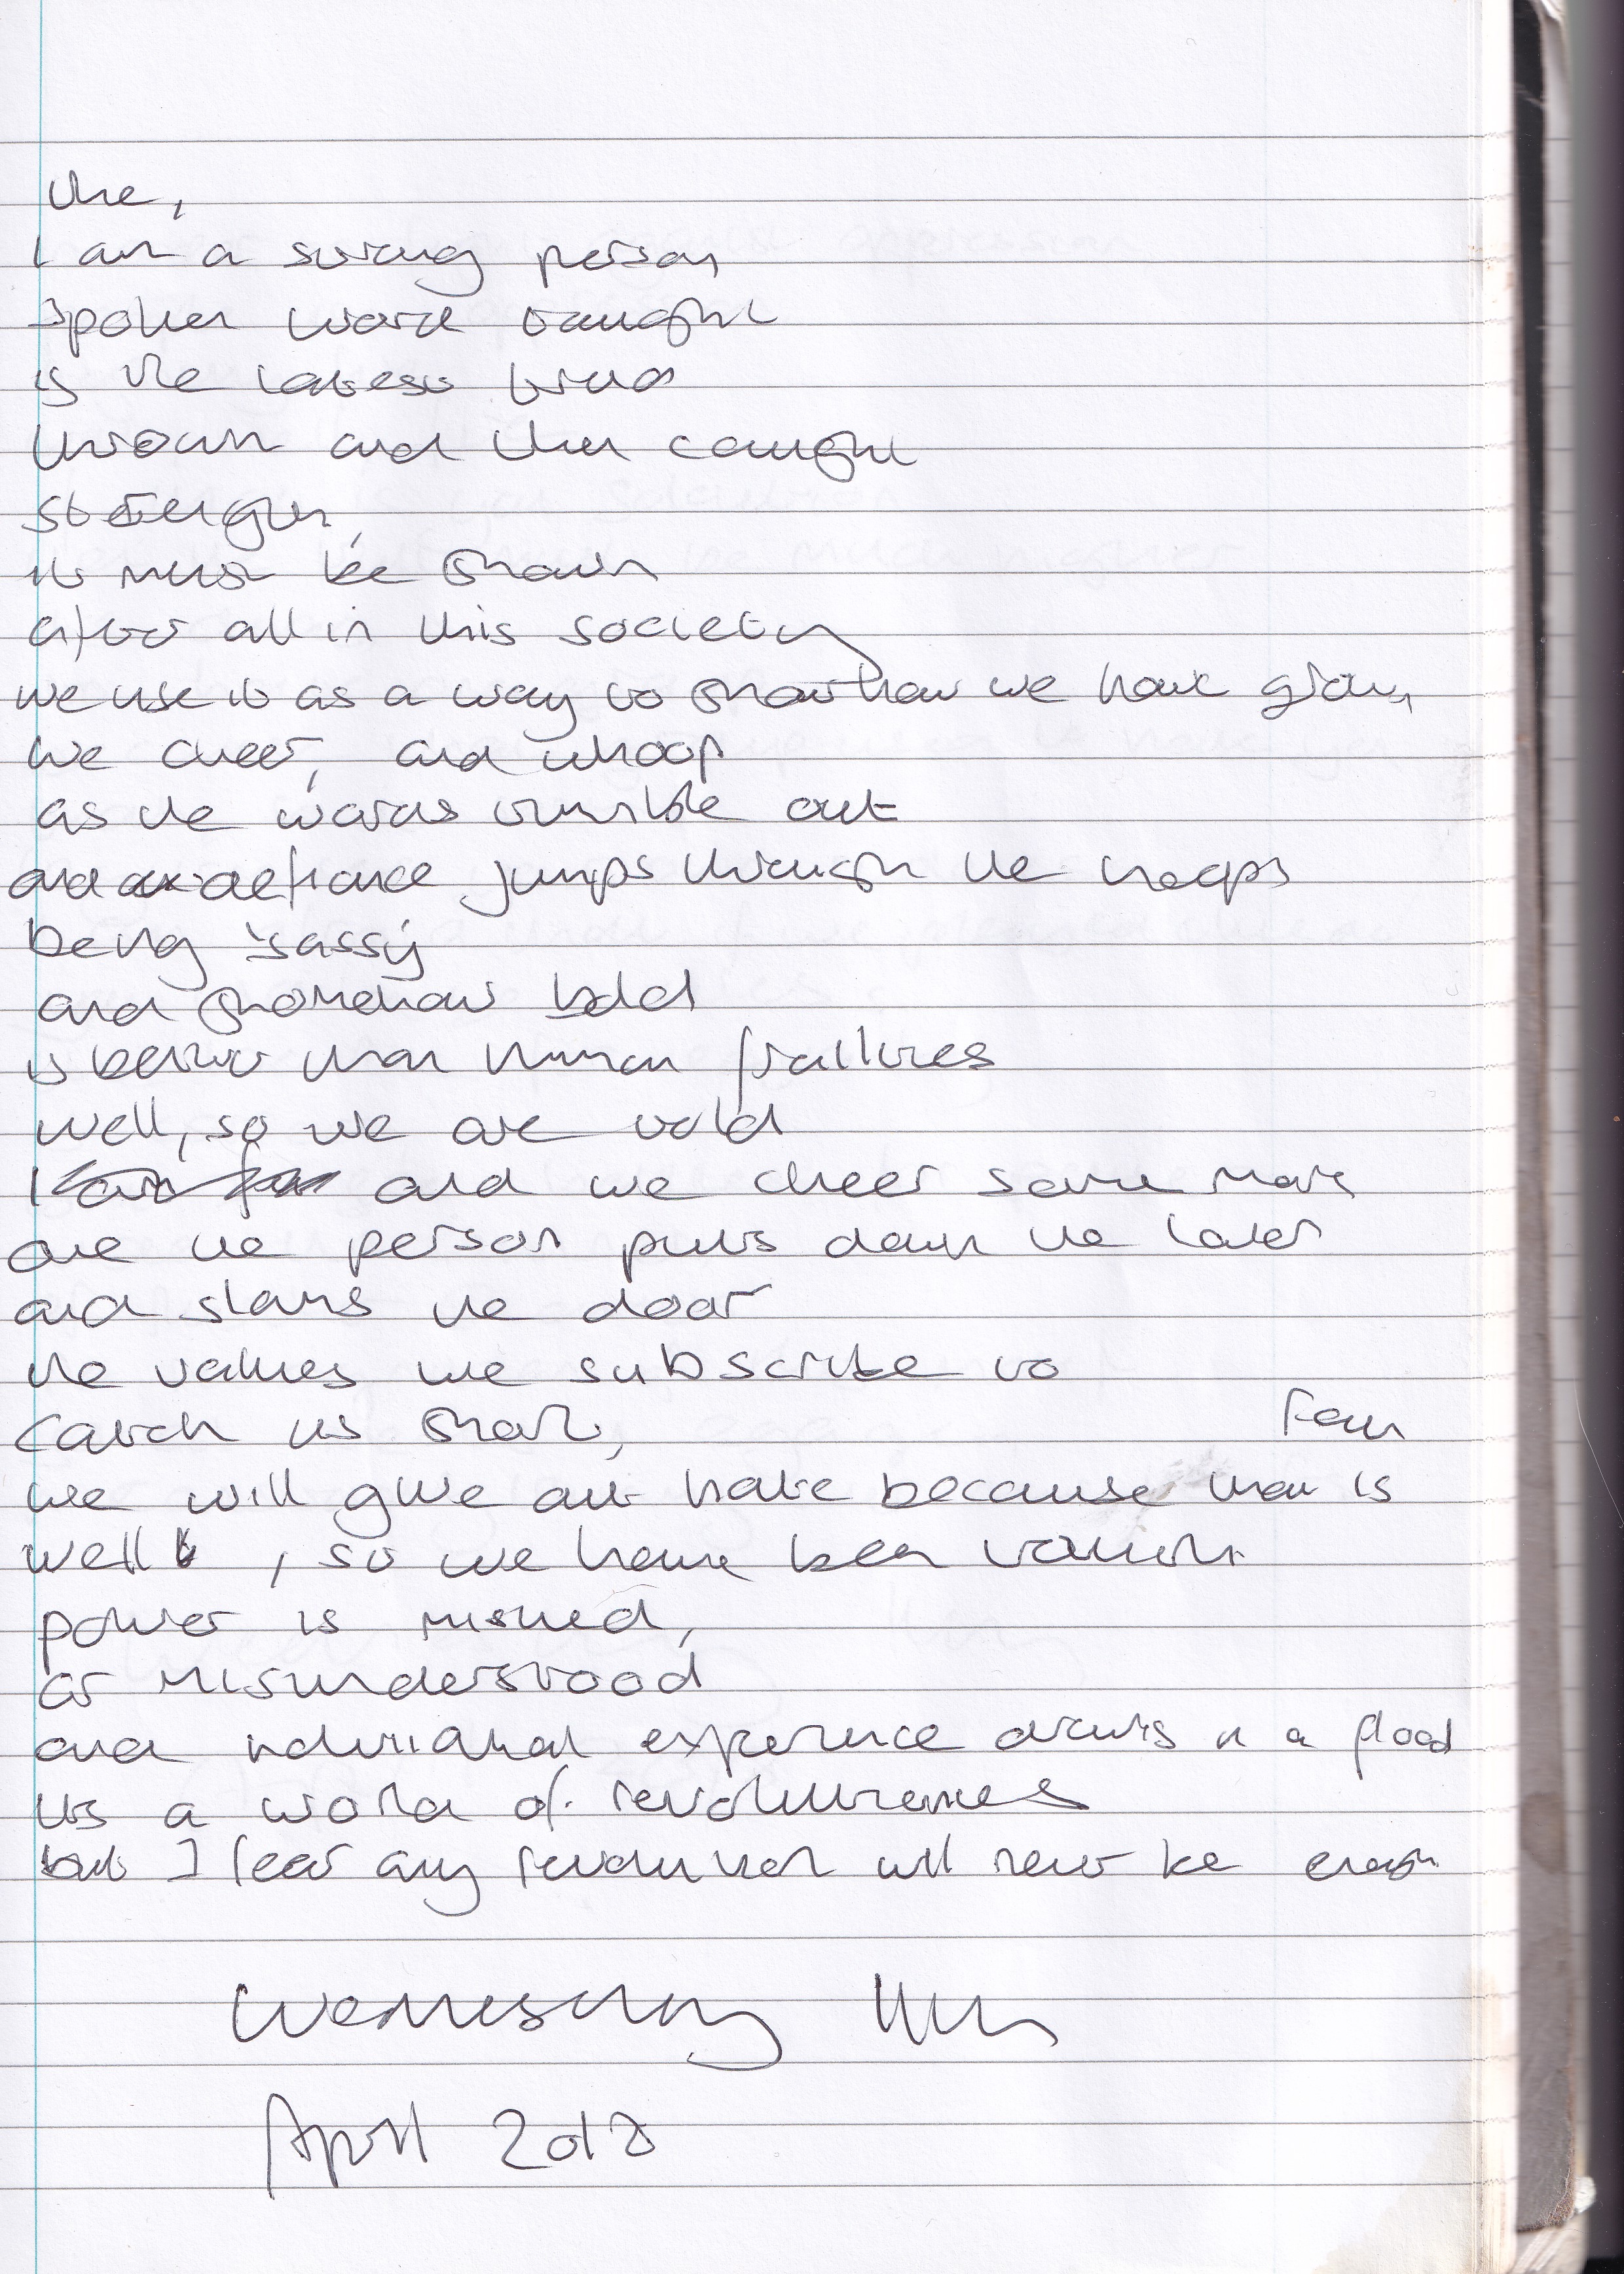 the,
I am a strong person
spoken word taught
is the latest trend
thrown and then caught
strength,
it must be shown
after all in this society
we use it as a way to show how we have grown
we cheer, and whoop
as the words tumble out
and defiance jumps through the hoops
being 'sassy'
and somehow bold
is better than human frailties
well, so we are told
and we cheer some more
one the person puts down the later
and slams the door
the values we subscribe to
catch us short,
we will give out hate because than is Fem
well, so we have been taught
power is misused,
or misunderstood
and individual experience drowns in a flood
its a world of revolutionaries
but I fear any revolution will never be enough
Wednesday 11th
April 2018